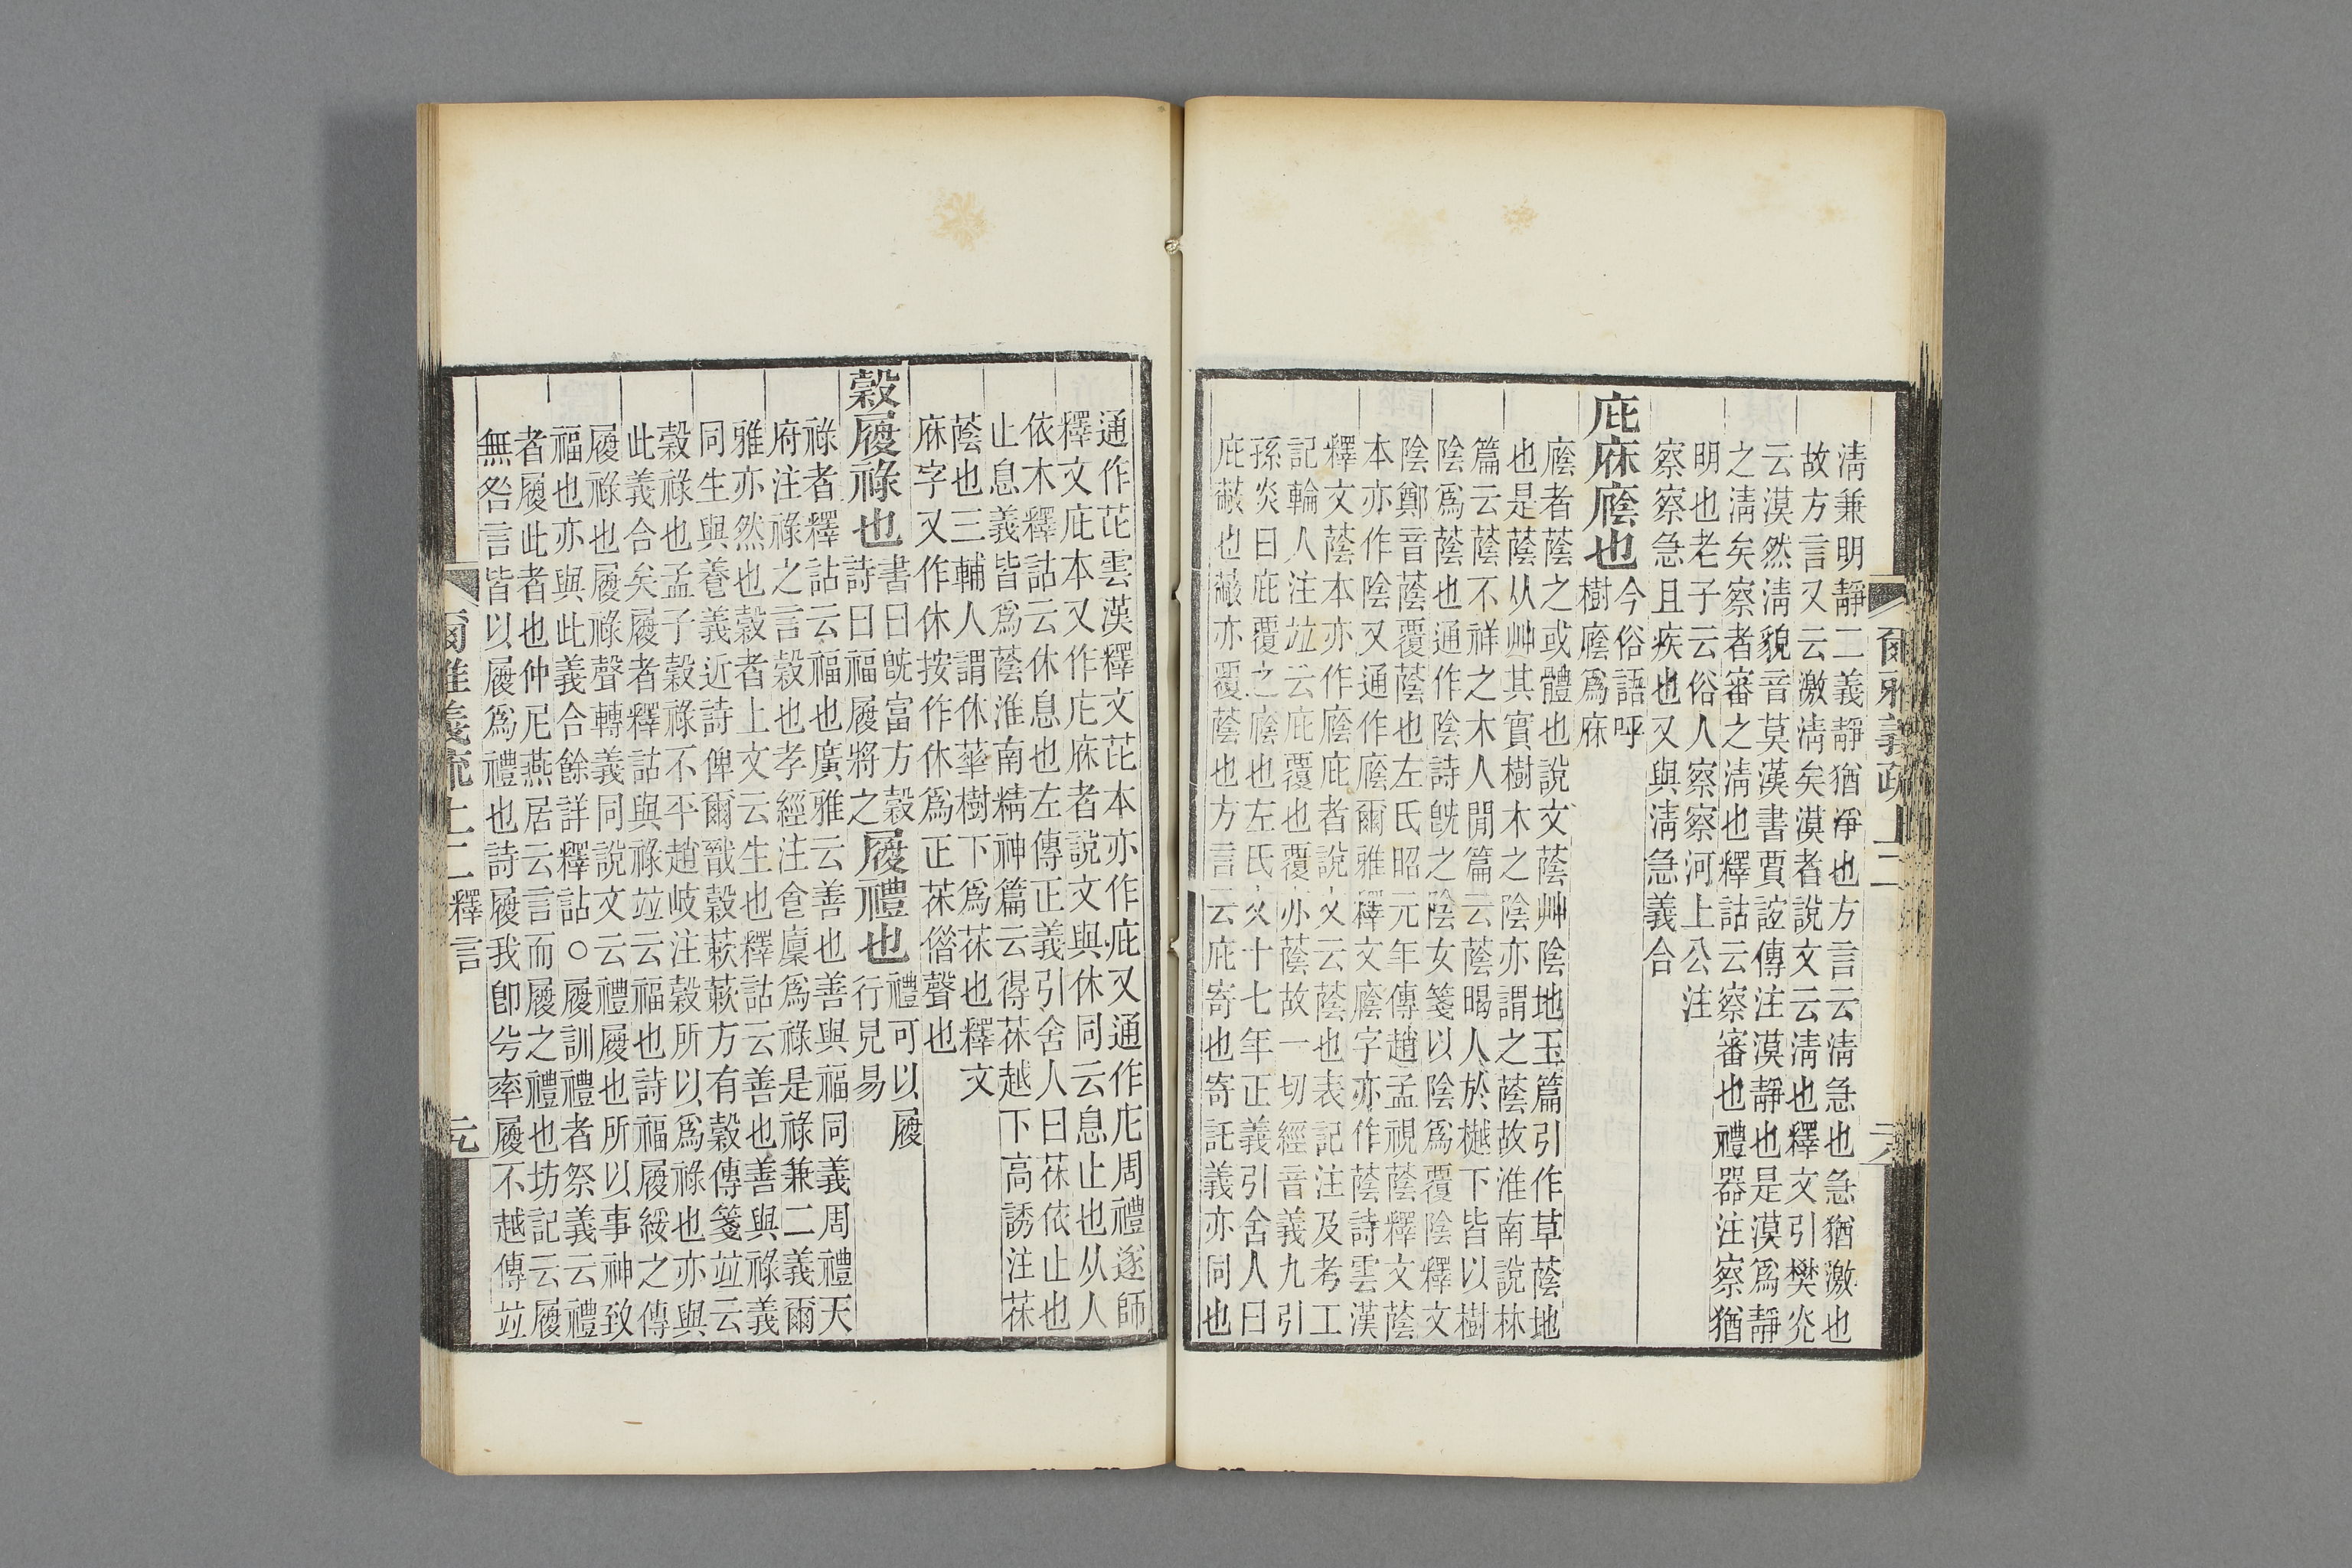 爾雅義疏上二
淸兼明靜二義靜猶淨也方言云淸急也急猶激也
故方言又云激淸矣漠者說文云淸也釋文引樊灮
云漠然淸貌音莫漢書賈誼傳注漠靜也是漠爲靜
之淸矣察者審之淸也釋詁云察審也禮器注察猶
明也老子云俗人察察河上公注
察察急且疾也又與淸急義合
庇庥廕也今俗語呼
樹廕爲庥
廕者蔭之或體也說文蔭艸陰地玉篇引作草蔭地
也是蔭从艸其實樹木之陰亦謂之蔭故淮南說林
篇云蔭不祥之木人閒篇云蔭暍人於樾下皆以樹
陰爲蔭也通作陰詩旣之陰女箋以陰爲覆陰釋文
陰鄭音蔭覆蔭也左氏昭元年傳趙孟視蔭釋文蔭
本亦作陰又通作廕爾雅釋文廕字亦作蔭詩雲漢
釋文蔭本亦作廕庇者說文云蔭也表記注及考工
記輪人注竝云庇覆也覆亦蔭故一切經音義九引
孫炎曰庇覆之廕也左氏文十七年正義引舍人曰
庇蔽也蔽亦覆蔭也方言云庇寄也寄託義亦同也
通作芘雲漢釋文芘本亦作庇又通作庀周禮遂師
釋文庇本又作庀庥者說文與休同云息止也从人
依木釋詁云休息也左傳正義引舍人曰茠依止也
止息義皆爲蔭淮南精神篇云得茠越下高誘注茠
蔭也三輔人謂休華樹下爲茠也釋文
庥字又作休按作休爲正茠偺聲也
穀履祿也書曰旣富方穀
詩曰福履將之
履禮也禮可以履
行見易
祿者釋詁云福也廣雅云善也善與福同義周禮天
府注祿之言穀也孝經注食廩爲祿是祿兼二義爾
雅亦然也穀者上文云生也釋詁云善也善與祿義
同生與養義近詩俾爾戩穀蔌蔌方有穀傳箋竝云
穀祿也孟子穀祿不平趙岐注穀所以爲祿也亦與
此義合矣履者釋詁與祿竝云福也詩福履綏之傳
履祿也履祿聲轉義同說文云禮履也所以事神致
福也亦與此義合餘詳釋詁○履訓禮者祭義云禮
者履此者也仲尼燕居云言而履之禮也坊記云履
無咎言皆以履爲禮也詩履我卽兮率履不越傳竝
爾雅義疏上二釋言